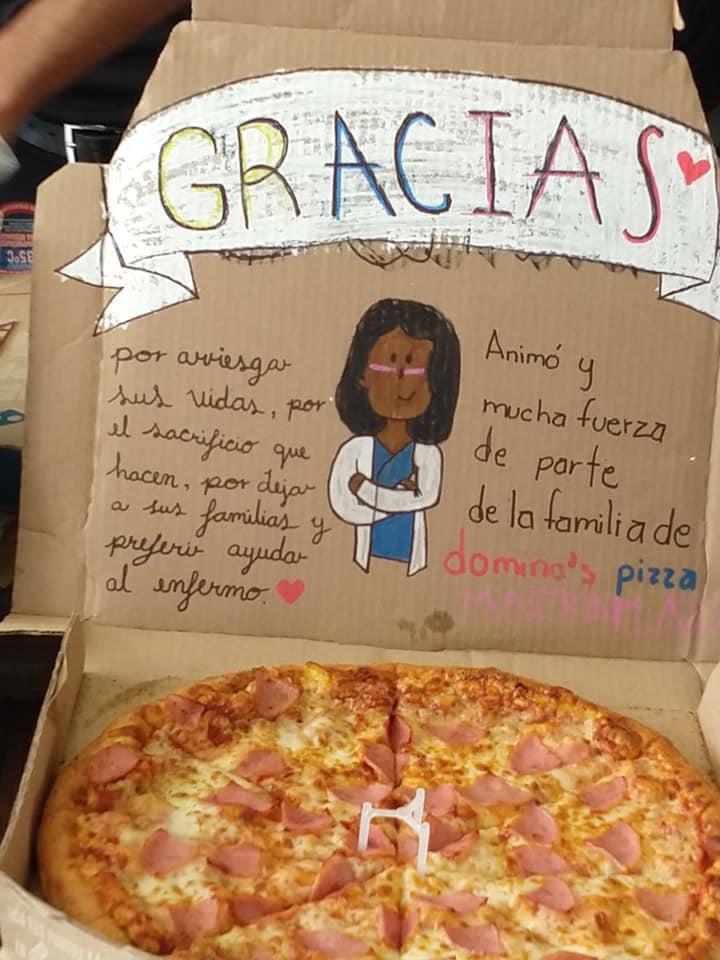 GRACIAS
por arriesgar
sus vidas, por
el sacrificio que
hacen, por dejar
a sus familias y
preferir ayudar
al enfermo.
Animó y
mucha fuerza
de parte
de la familia de
domino's pizza